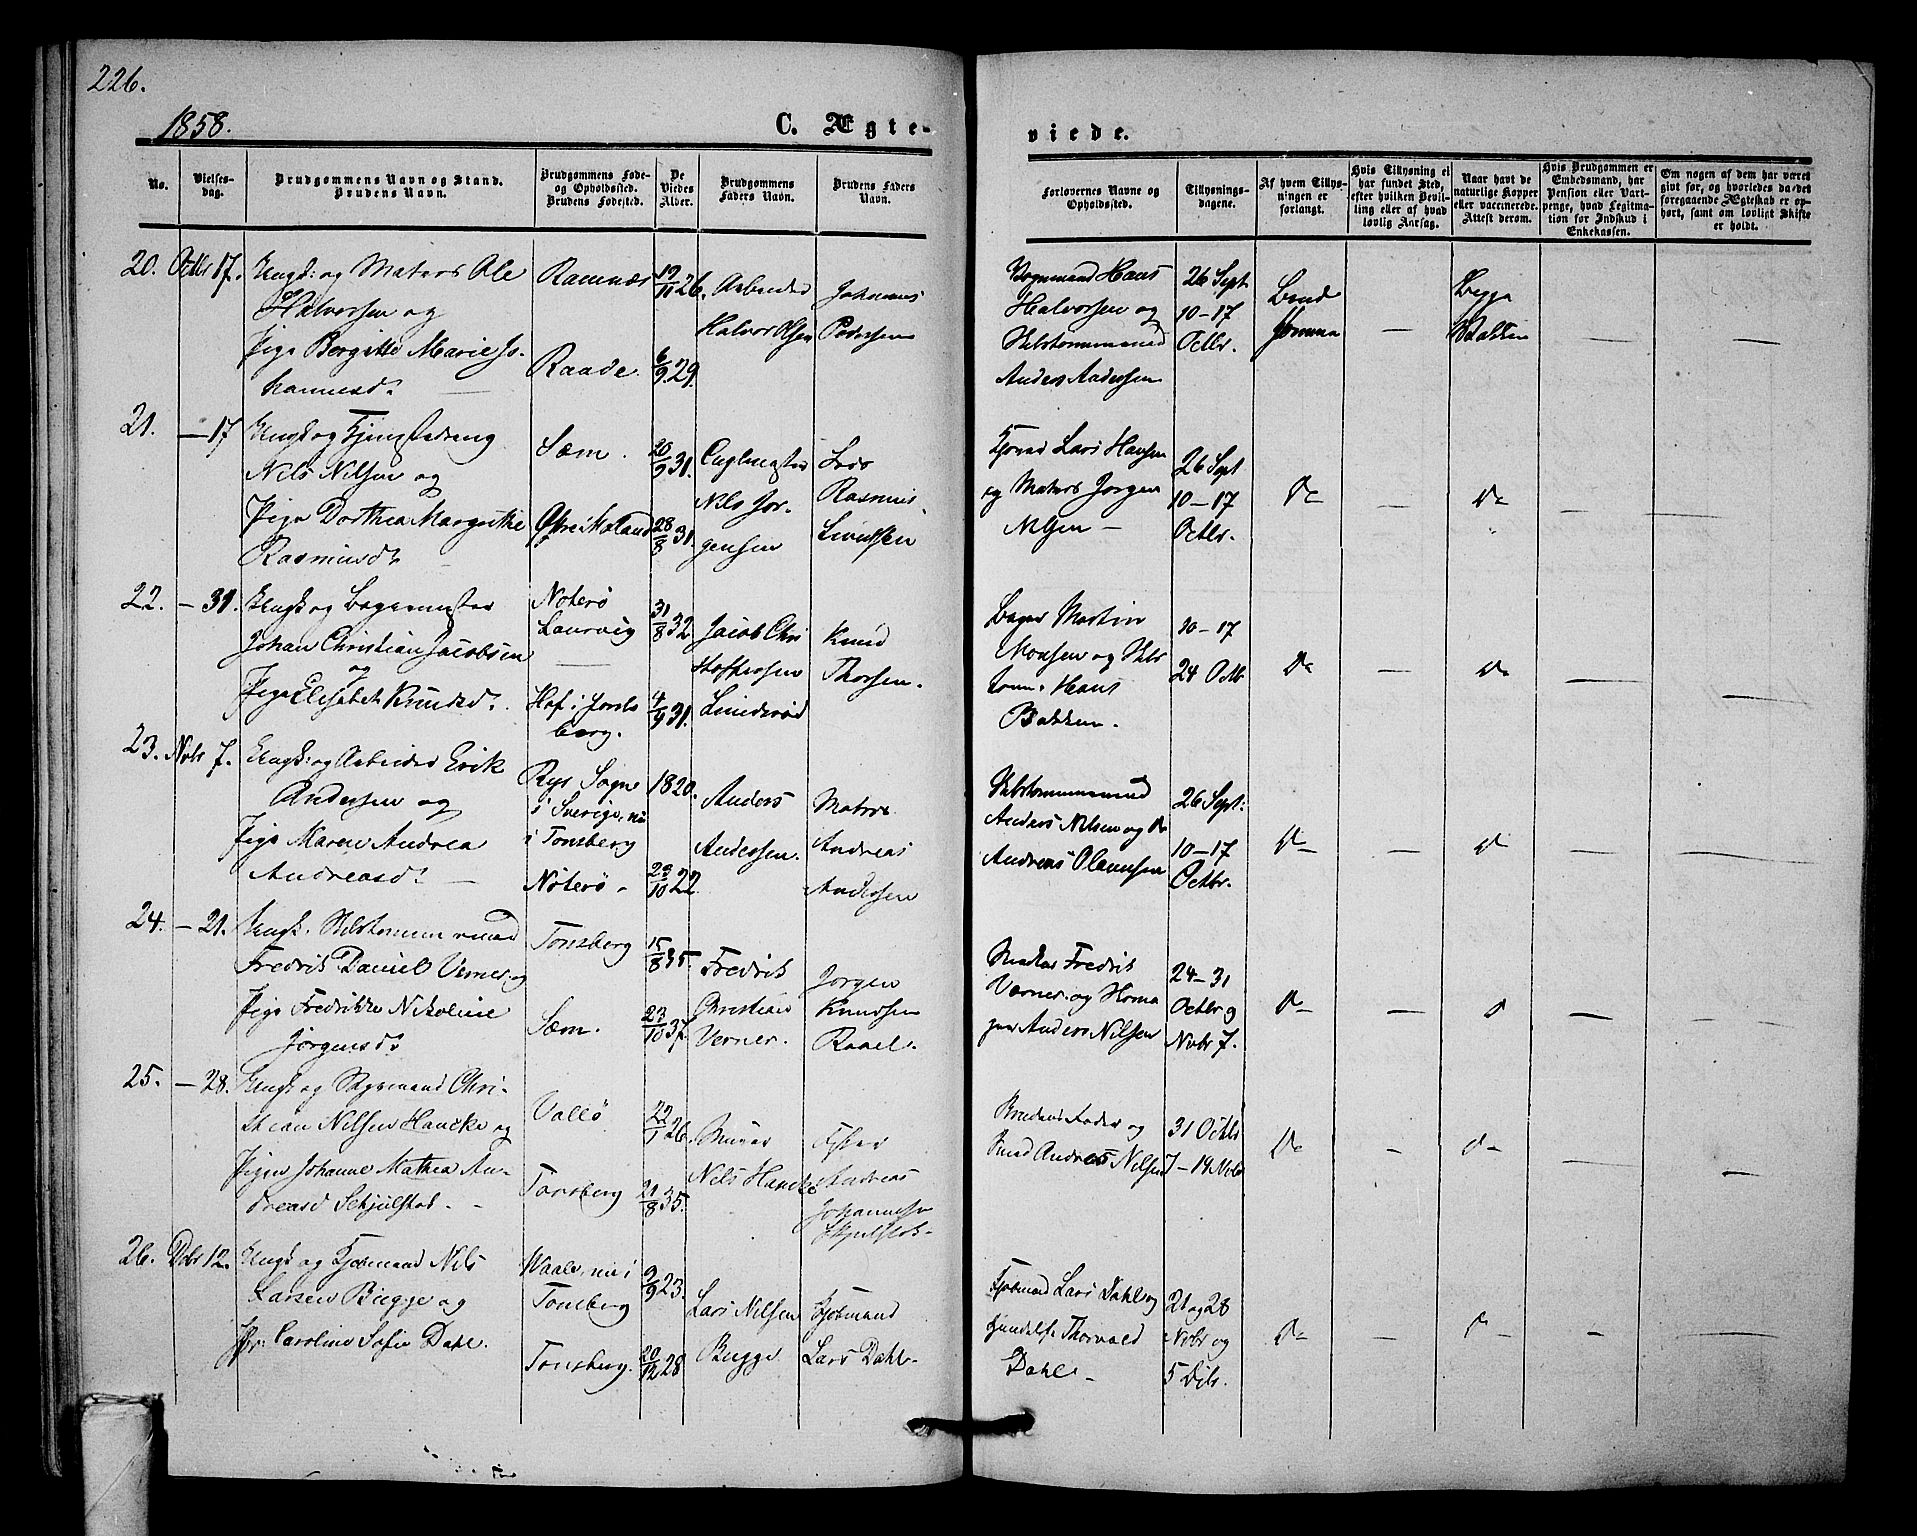 226.
1858.
C. Ægte-
viede.
No.
Vielses-
dag.
Brudgommens Navn og Stand.
Brudens Navn.
Brudgommens Føde-
og Opholdssted.
Brudens Fødested.
De
Viedes
Alder.
Brudgommens
Faders Navn.
Brudens Faders
Navn.
Forlovernes Navne og
Opholdssted.
Tillysnings-
dagene.
Af hvem Tillys-
ningen er
forlangt.
Hvis Tillysning ei
har fundet Sted,
efter hvilken Bevil-
ling eller af hvad
lovlig Aarsag.
Naar havt de
naturlige Kopper
eller vaccinerede.
Attest derom.
Hvis Brudgommen er
Embedsmand, har
Pension eller Vart-
penge, hvad Legitima-
tion for Indskud i
Enkekassen.
Om nogen af dem har været
gift før, og hvorledes da det
foregaaende Ægteskab er op-
hørt, samt om lovligt Skifte
er holdt.
20. Octbr 17. Ungk: og Matros Ole
Halvorsen og
Pige Borgitte Marie Jo-
hannesdr
Ramnæs
Raade.
19/11 26.
6/9 29.
Arbeider
Halvor Olsen
Johannes
Pedersen
Hans
Halvorsen og
Anders Andersen
26 Sept
10-17
Octbr.
Brud
gommen
Begge
21. - 17 Ungk og
Nils Nilsen og
Pige Dorthea Margrethe
Rasmusdr
Sæm.
Øvre Moland
20/9 31.
28/8 31.
Nils Jør-
gensen
Rasmus
Lars Hansen
og Matros Jørgen
Nilsen -
26 Sept
10-17
Octbr.
Do
Do
22. - 31. Ungk og Bagermester
Johan Christian Jacobsen
og
Pige Elisabeth Knudsd.
Noterø
Laurvig
Hof i Jarls
berg.
31/8 32
4/9 31.
Jacob Chri
stophersen
Linderød
Knud
Thorsen.
Bager Martin
Monsen og
Hans
Bakken.
10-17
24 Octb
Do
Do
23. Nvbr 7. Ungk: og Arbeider Erik
Andersen og
Pige Maren Andrea
Andreasdr
Rys Sogn
i Sverige, nu
i Tonsberg
Noterø -
1820.
23/10 22
Anders
Andersen.
Matros
Andreas
Andersen
Anders Nilsen og Do
Andreas Olaussen
26 Sept:
10-17
Octbr.
Do
Do
24. - 21. Ungk.
Fredrik Daniel Verner og
Pige Fredrikke Nikoline
Jørgensdr
Tonsberg
Sæm.
15/8 35.
23/10 37
Fredrik
Christian
Verner.
Jørgen
Knudsen
Fredrik
Verner og
Anders Nilsen
24-31
Octbr og
Nvbr 7.
Do
Do
25. - 28. Ungk og Styrmand Chri-
stian Nilsen Hancke og
Pigen Johanne Mathea An-
dreasd Schjulstad. -
Vallø
Tonsberg
22/1 26.
21/8 35.
Murer
Nils Hancke
Andreas
Brudens Fader og
Smed Andreas Nilsen
31 Octbr
7-14 Nvbr
Do
Do
26. Dcbr 12. Ungk og Kjøbmand Nils
Larsen Bugge og
Caroline Sofie Dahl.
Waale, nu i
Tonsberg
Tonsberg.
9/9 23.
20/12 28
Lars Nilsen
Bugge
Kjøbmand
Lars Dahl-
Kjøbmand Lars Dahl og
Thorvald
Dahl -
21 og 28
Nvbr og
5 Dcbr.
Do
Do